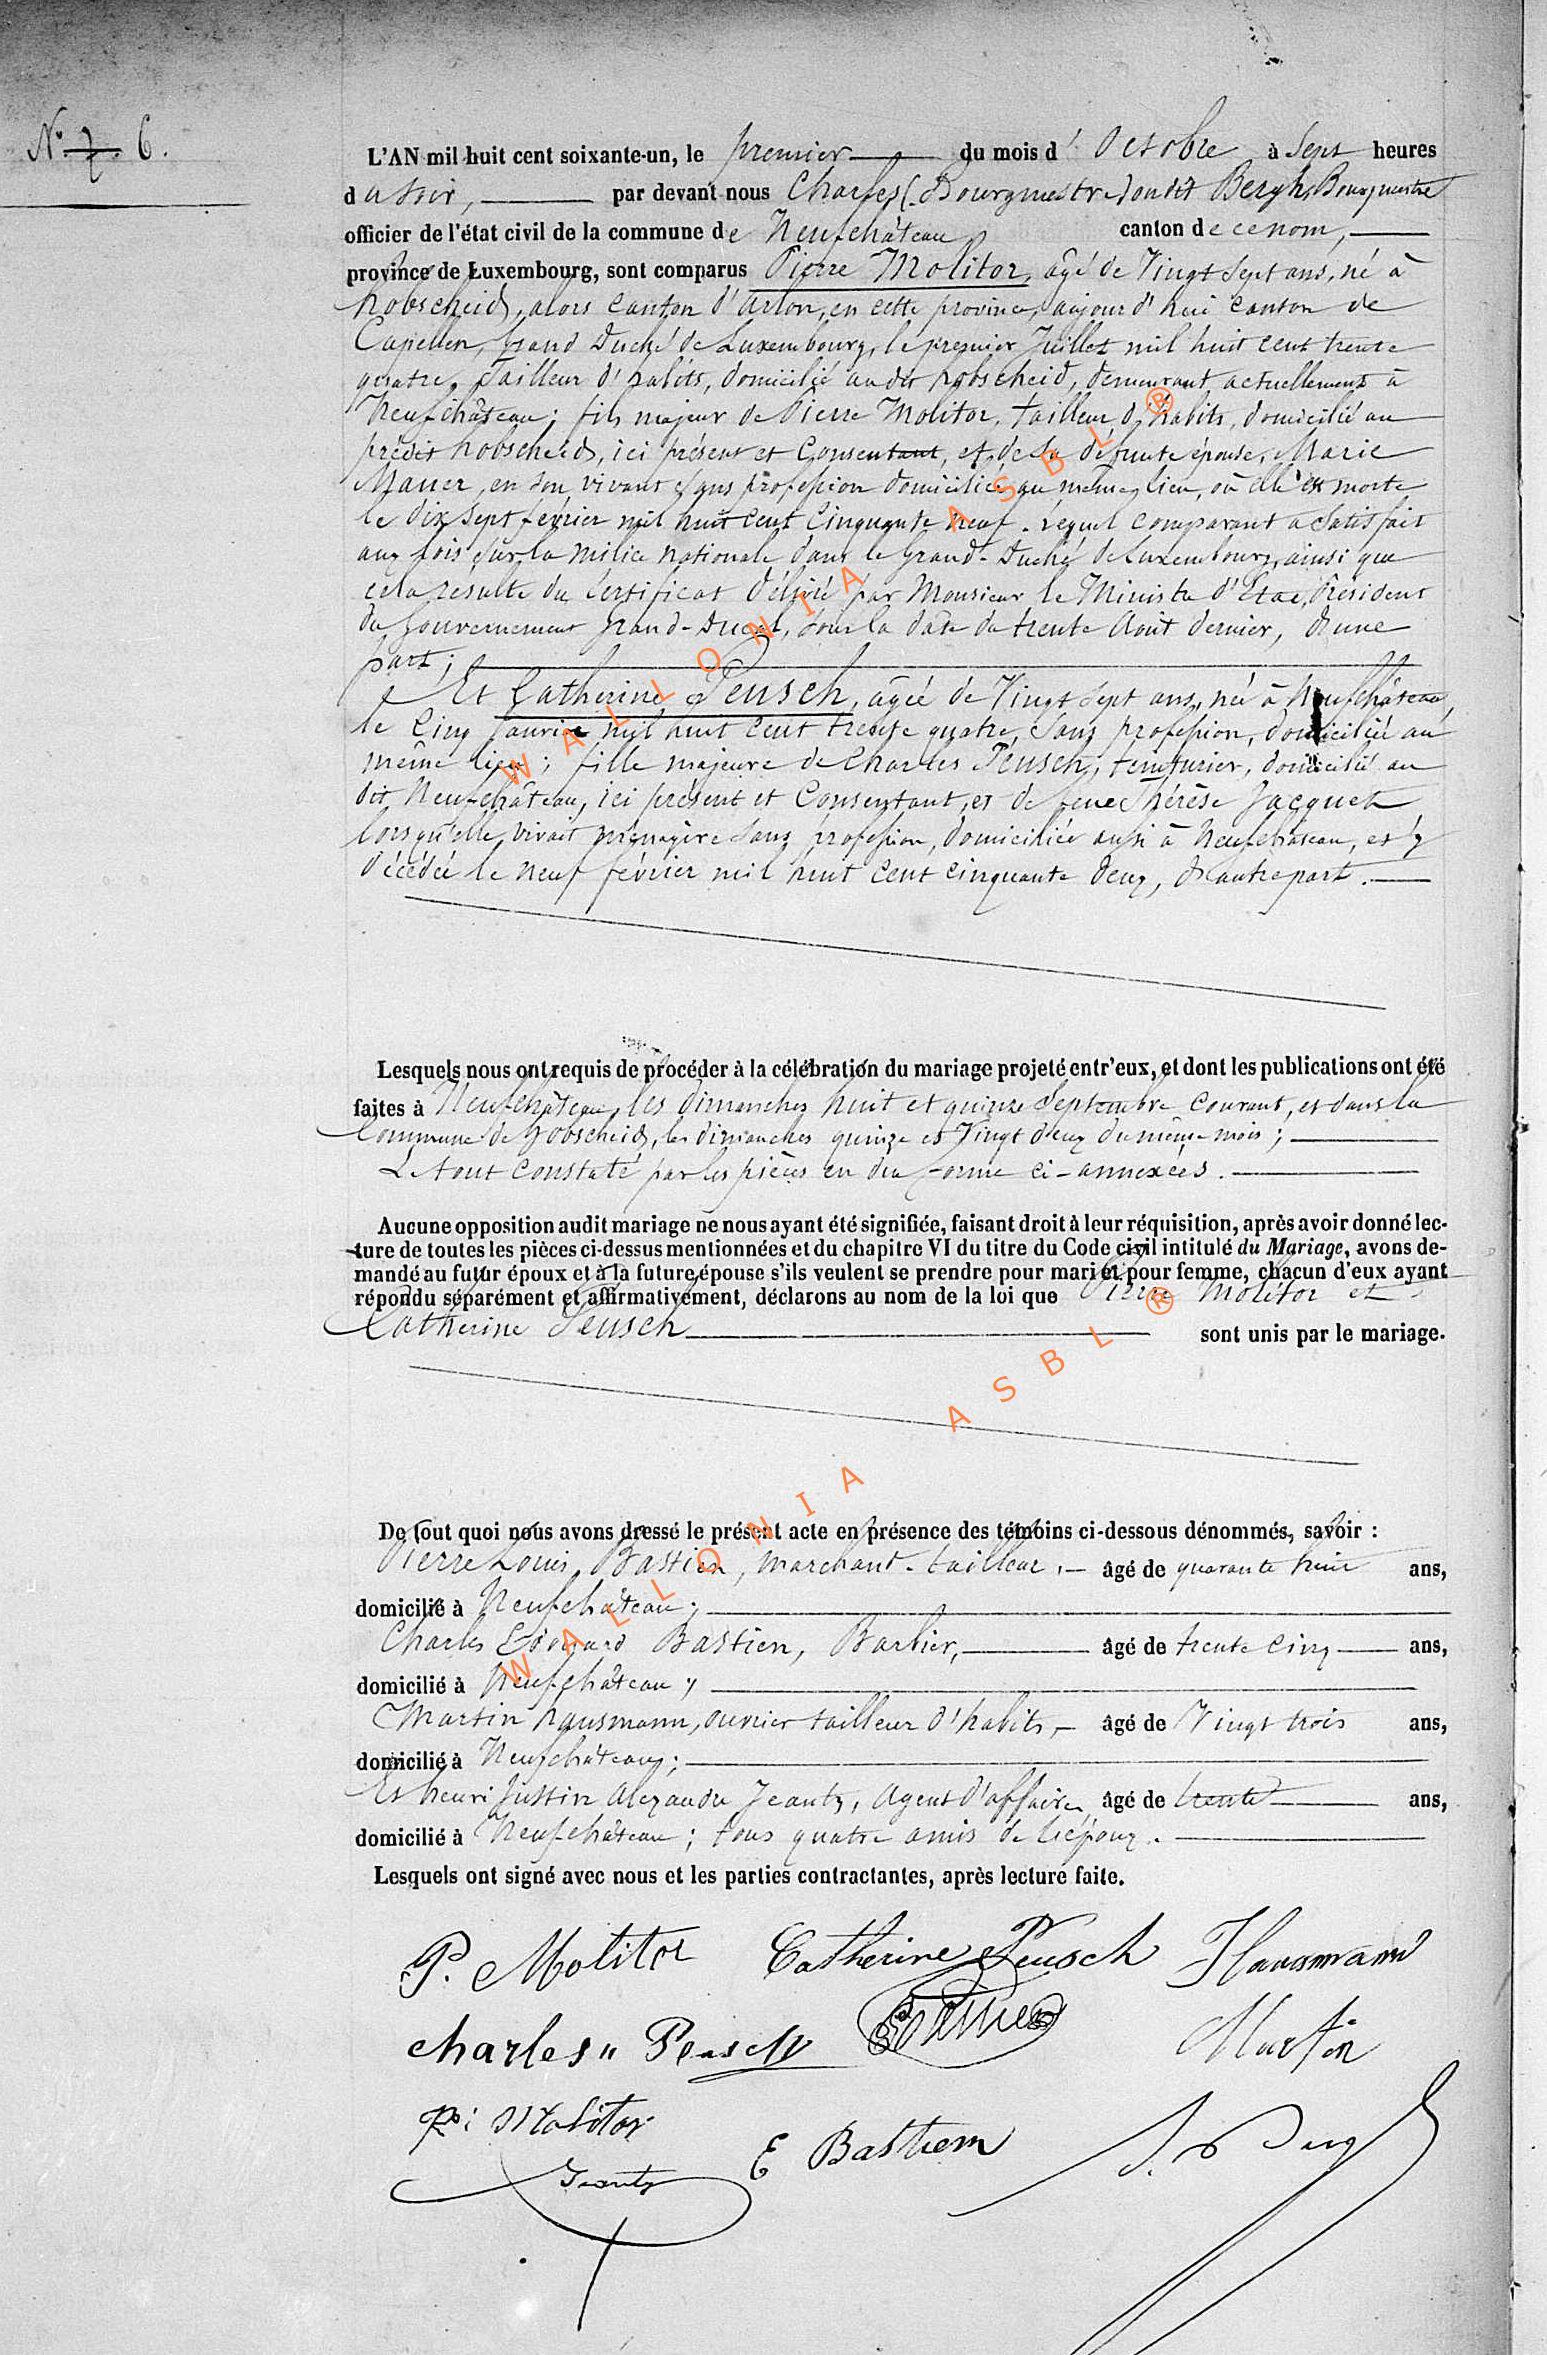 N° 7. 6.
L'AN mil huit cent soixante-un, le premier du mois d'Octobre à Sept heures
du Soir, par devant nous Charles (Bourgmestre) on dit Bergh, Bourgmestre
officier de l'état civil de la commune de Neufchâteau canton de ce nom,
province de Luxembourg, sont comparus Pierre Molitor, âgé de Vingt Sept ans, né à
hobscheid, alors canton d'Arlon, en cette province, aujourd'hui canton de
Capellen, Grand Duché de Luxembourg, le premier Juillet mil huit cent trente
quatre, Tailleur d'habits, domicilié au dit hobscheid, demeurant actuellement à
Neufchâteau; fils majeur de Pierre Molitor, tailleur d'habits, domicilié au
prédit hobscheid, ici présent et Consentant, et de Sa défunte épouse, Marie
Maner, en Son vivant Sans profession domiciliée au même lieu, où elle est morte
le dix Sept fevrier mil huit cent Cinquante neuf. Lequel comparant a Satisfait
aux lois Sur la milice nationale dans le Grand-Duché de Luxembourg, ainsi que
cela resulte du Certificat délivré par Monsieur le Ministre d'Etat, Président
du Gouvernement Grand-Ducal, Sous la date du trente Août dernier, d'une
part;
Et Catherine Peusch, âgée de Vingt Sept ans, née à Neufchâteau,
le Cinq Janvier mil huit Cent trente quatre, Sans profession, domiciliée au
même lieu; fille majeure de Charles Peusch, teinturier, domicilié au
dit Neufchâteau, ici présent et Consentant, et de feue Thérèse Jacquet
lorsqu'elle vivait ménagère Sans profession, domiciliée aussi à Neufchâteau, et y
décédée le neuf février mil huit Cent cinquante deux, d'autre part.
Lesquels nous ont requis de procéder à la célébration du mariage projeté entr'eux, et dont les publications ont été
faites à Neufchâteau, les dimanches huit et quinze Septembre Courant, et dans la
Commune de hobscheid, les dimanches quinze et Vingt deux du même mois;
Le tout Constaté par les pièces en due forme ci-annexées.
Aucune opposition audit mariage ne nous ayant été signifiée, faisant droit à leur réquisition, après avoir donné lec-
ture de toutes les pièces ci-dessus mentionnées et du chapitre VI du titre du Code civil intitulé du Mariage, avons de-
mandé au futur époux et à la future épouse s'ils veulent se prendre pour mari et pour femme, chacun d'eux ayant
répondu séparément et affirmativement, déclarons au nom de la loi que Pierre Molitor et
Catherine Peusch sont unis par le mariage.
De tout quoi nous avons dressé le présent acte en présence des témoins ci-dessous dénommés, savoir :
Pierre Louis Bastien, marchand-tailleur, âgé de quarante huit ans,
domicilié à Neufchâteau;
Charles Edouard Bastien, Barbier, âgé de trente cinq ans,
domicilié à Neufchâteau;
Martin hausmann, ouvrier tailleur d'habits, âgé de Vingt trois ans,
domicilié à Neufchâteau;
Et henri Justin Alexandre Jeanty, Agent d'affaires, âgé de trente ans,
domicilié à Neufchâteau; tous quatre amis de l'époux.
Lesquels ont signé avec nous et les parties contractantes, après lecture faite.
P. Molitor Catherine Peusch Hausmann
Charles Peusch Bastien Martin
Pi Molitor
E Bastien
Jeanty
WALLONIA ASBL ®
WALLONIA ASBL ®